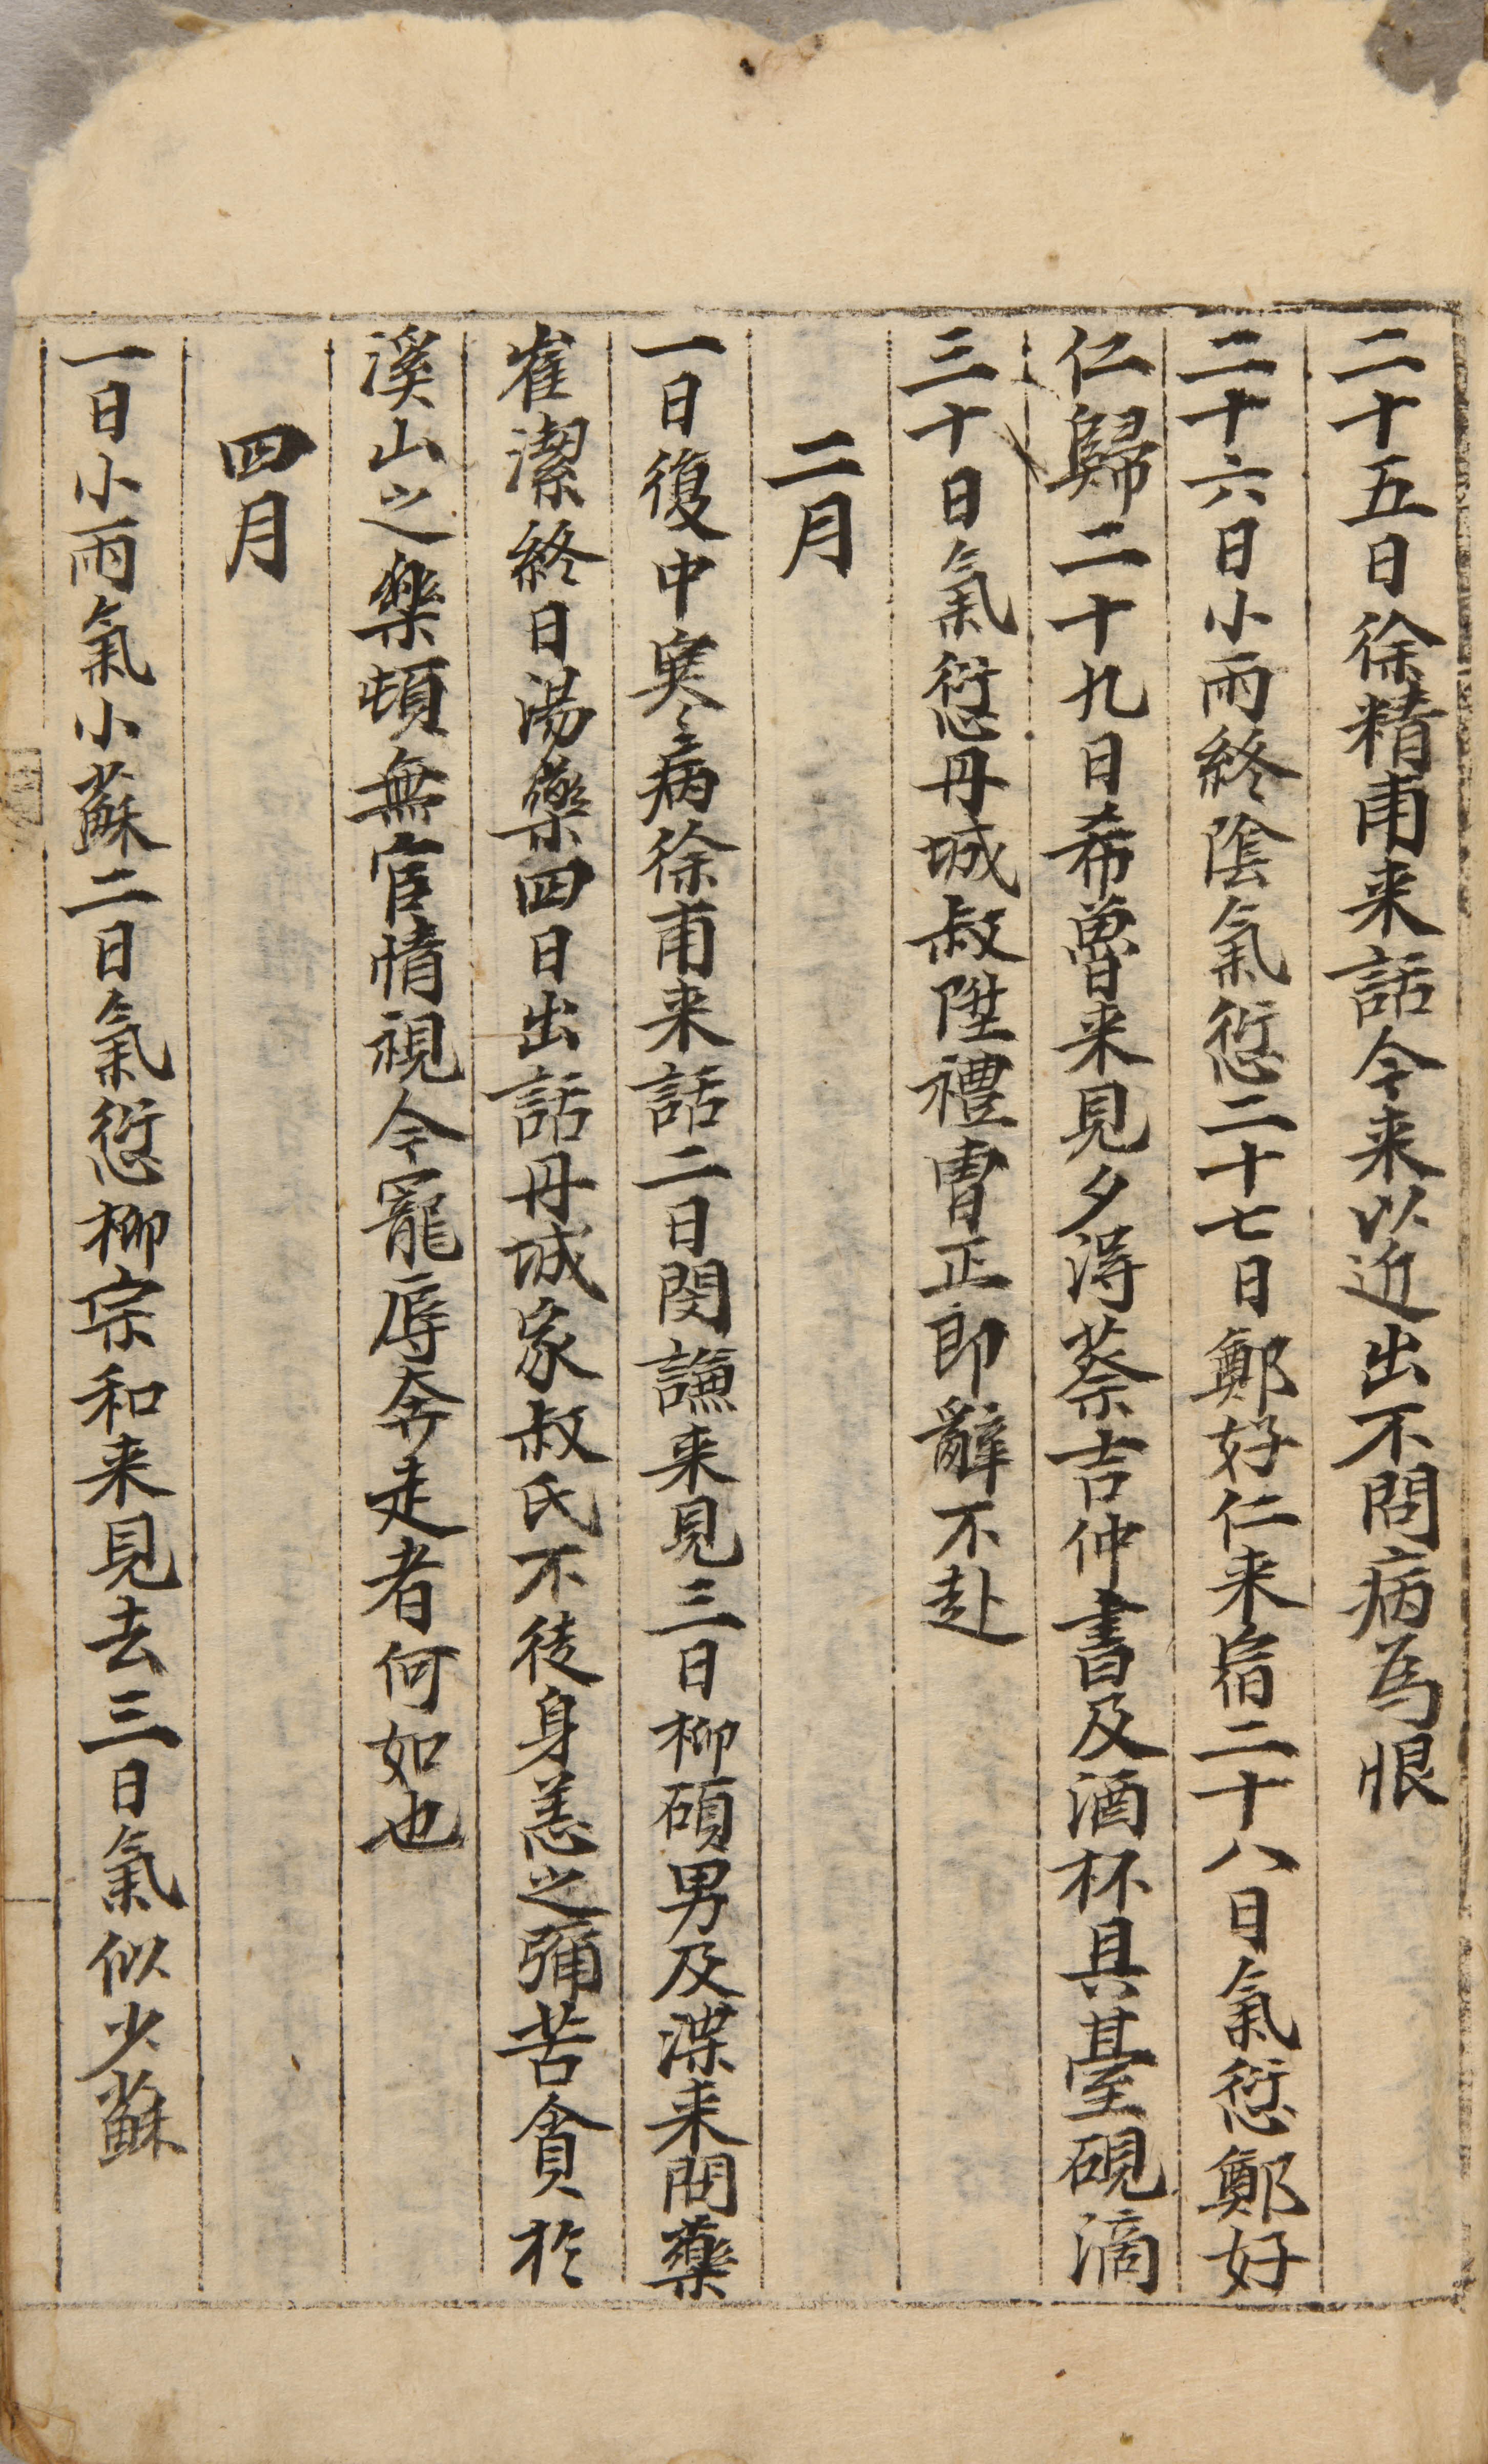 二十五日徐精甫来話今来以近出不問病為恨
二十六日小雨終陰氣愆二十七日鄭好仁来宿二十八日氣愆鄭好
仁歸二十九日希曾来見夕得蔡吉仲書及酒杯具臺硯滴
三十日氣愆丹城叔陞禮曺正即辭不赴
二月
一日復中寒病徐甫来話二日閔謙来見三日柳碩男及渫来問藥
崔潔終日湯藥四日出話丹城家叔氏不徒身恙之彌苦貪於
溪山之樂頓無宦情視今寵辱奔走者何如也
四月
一日小雨氣小蘇二日氣愆柳宗和来見去三日氣似少蘇